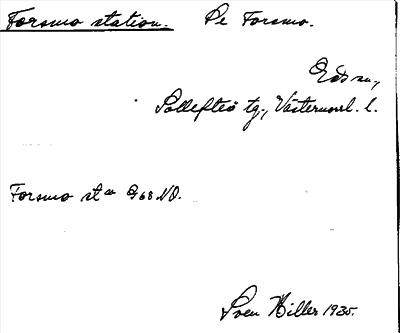 Forsmo station. Se Forsmo.
Eds sn.,
Sollefteå tg., Västernorrl. l.
Forsmo stn G68 NO.
Sven Hiller 1935.